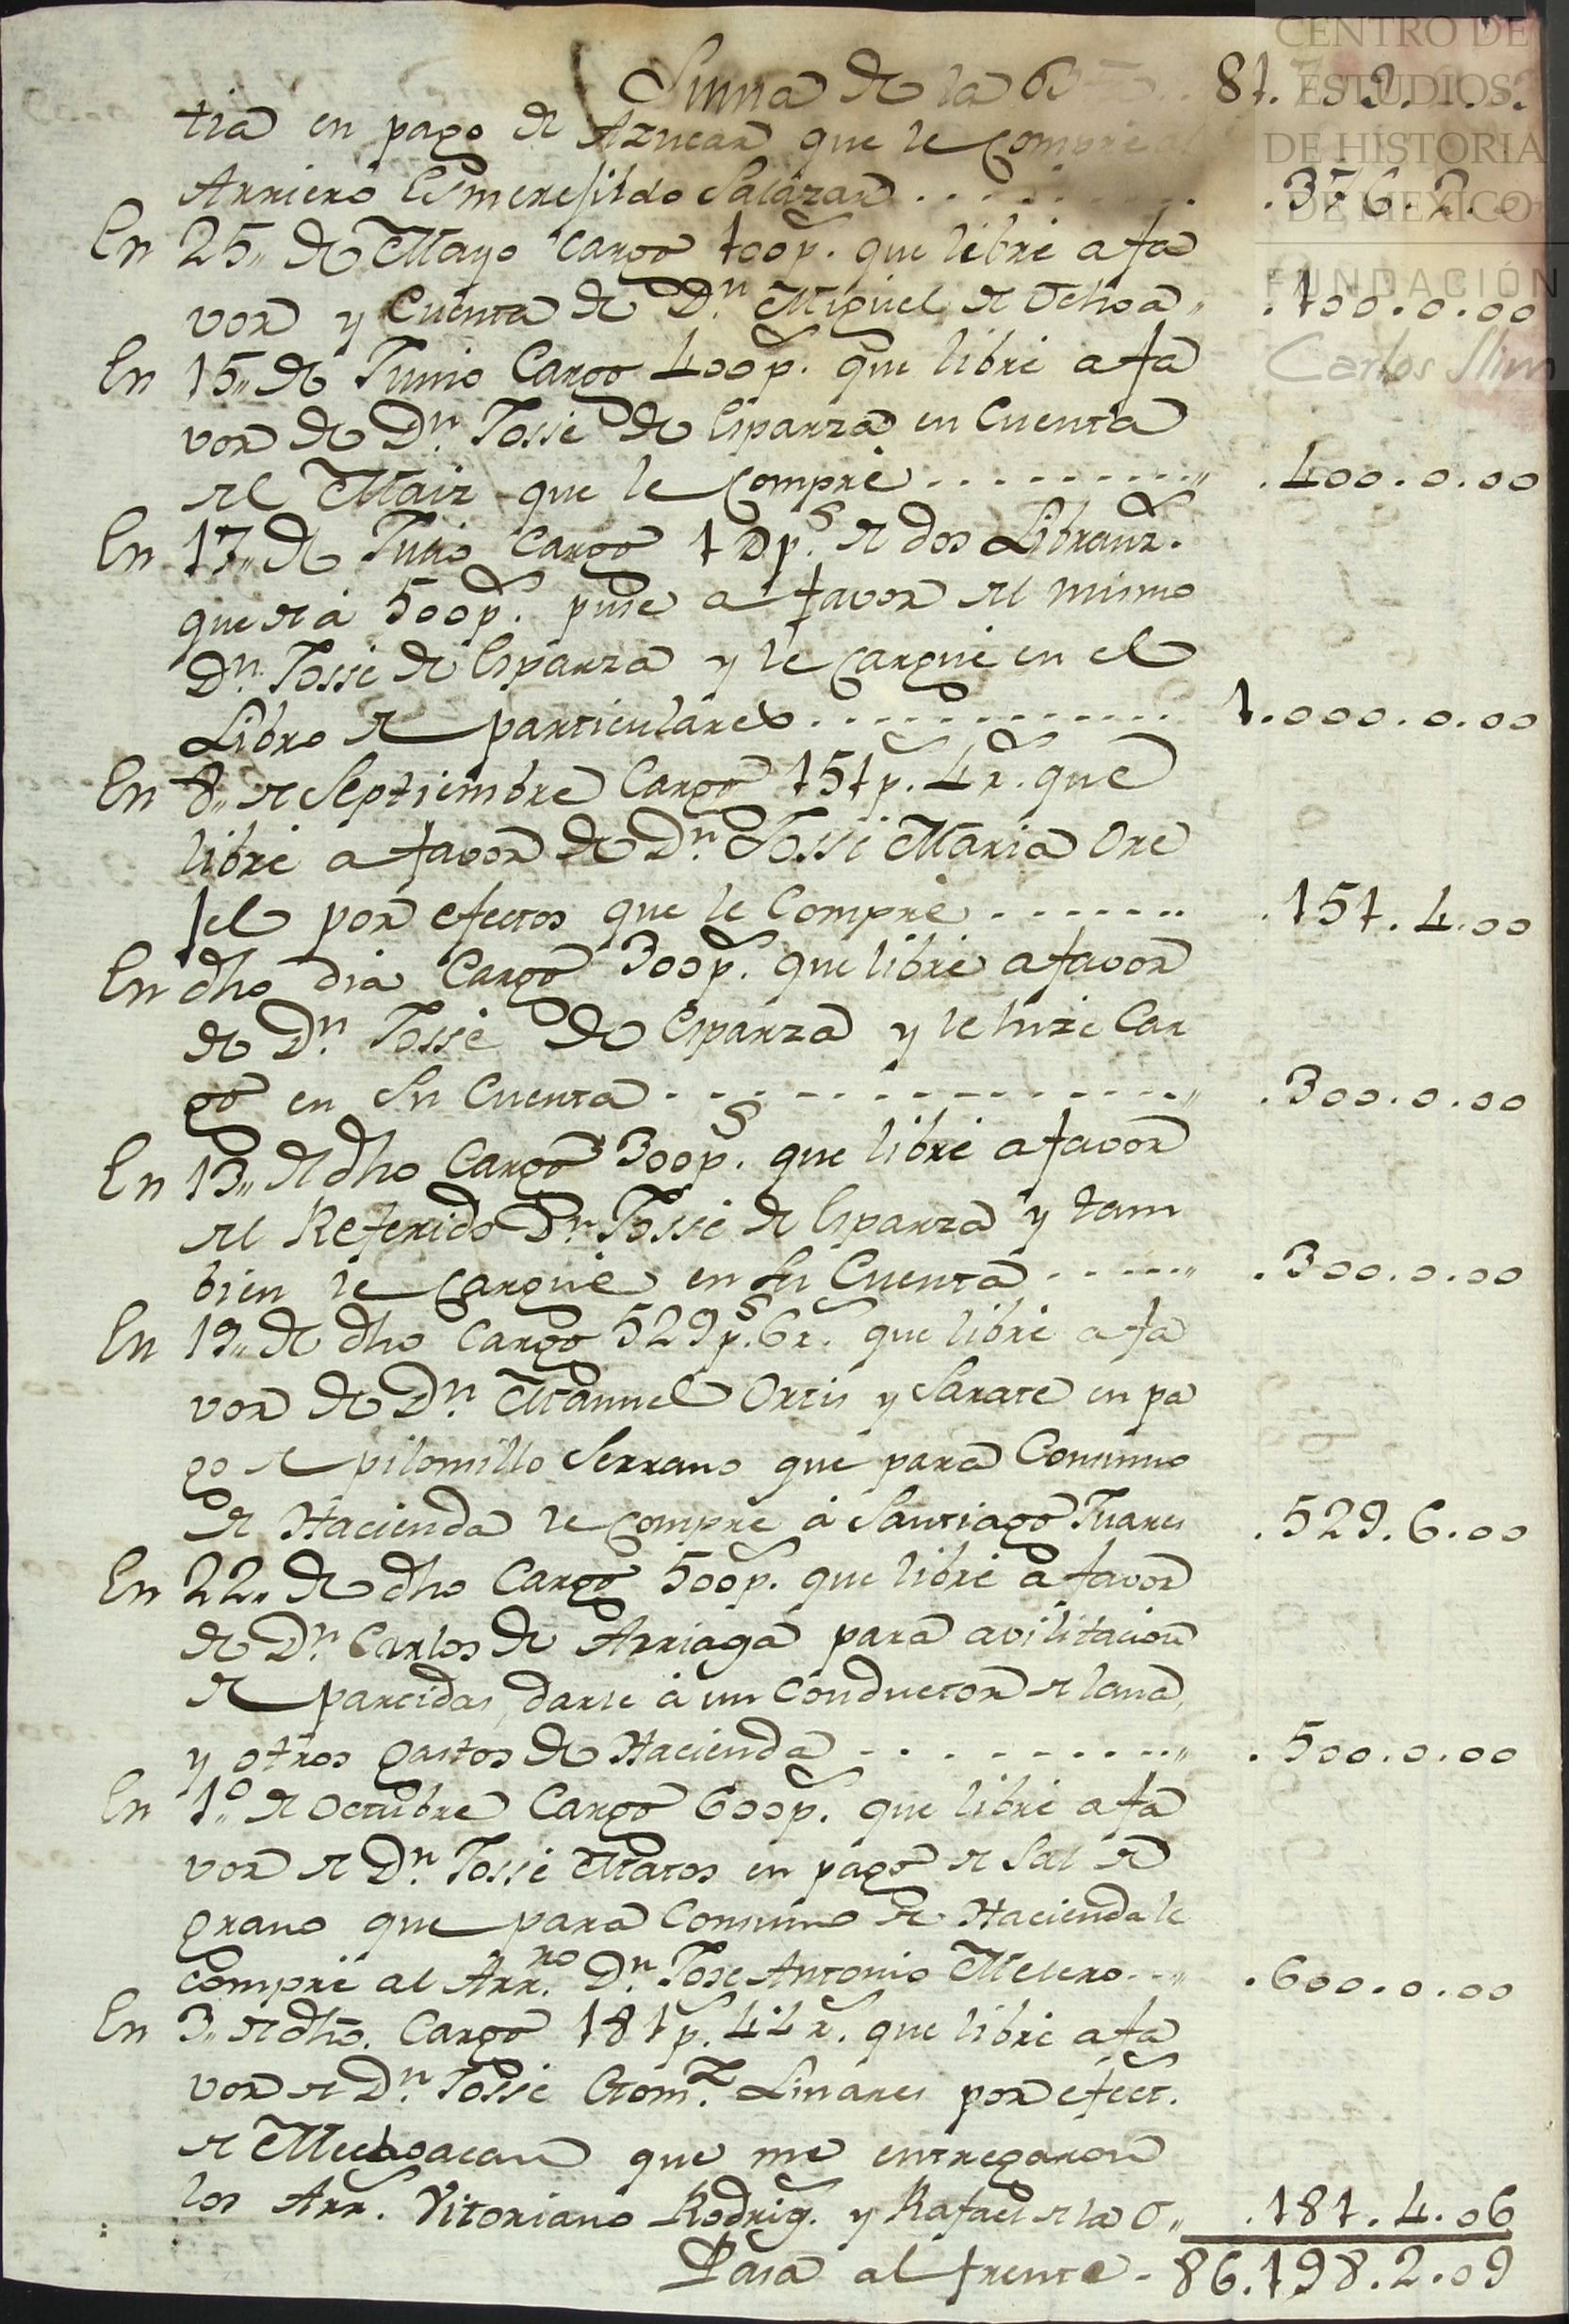 Suma de la 
tia en pago de Azucar que le Compre
Arriero Esmeregildo Salazar . . . . . . . .376.2.
En 25,, de Mayo cargo 100 p.s que libré a fa
vor y Cuenta de D.n Miguel de Ochoa ,, .100.0.00
En 15,, de Junio Cargo 400 p.s que libré a fa
vor de D.n Josse de Esparza en Cuenta
del Maiz que le Compré . . . . . . . . ,, .400.0.00
En 17,, de Junio Cargo 1 D p.s de dos Libranz.s
que de á 500 p.s puse a favor del mismo
D.n Josse de Esparza y le Cargué en el
Libro de particulares . . . . . . . . . 1.000.0.00
En 8,, de Septiembre Cargo 151 p.s 4 r.s que
libré a favor de D.n Josse Maria Ore
jel por efectos que le Compré . . . . . . . .151.4.00
En dho dia Cargo 300 p.s que libré a favor
de D.n Josse de Esparza y le hize Car
go en Su Cuenta . . . . . . . . . . . ,, .300.0.00
En 13,, de dho Cargo 300 p.s que libré a favor
del Referido D.n Josse de Esparza y tam
bien le Cargué en Su Cuenta . . . . . ,, .300.0.00
En 19,, de dho Cargo 529 p.s 6 r.s que libré a fa
vor de D.n Manuel Ortis y Sarate en pa
go de piloncillo Serrano que para Consumo
de Hacienda le Compré á Santiago Juares .529.6.00
En 22,, de dho Cargo 500 p.s que libré a favor
de D.n Carlos de Arriaga para avilitacion
de partidas, darle á un Conductor de lana,
y otros gastos de Hacienda . . . . . . . . . ,, .500.0.00
En 1.o de Octubre Cargo 600 p.s que libré a fa
vor de D.n Josse Matos en pago de Sal de
grano que para Consumo de Hacienda le
compré al Arr.no D.n Jose Antonio Melero . . ,, .600.0.00
En 3,, de dho. Cargo 181 p.s 4 r.s que libré a fa
vor de D.n Josse Linares por efect.s
de Mechoacan que me entregaron
los Arr.s Vitoriano Rodrig.s y Rafael de la O ,, .181.4.06
Pasa al frente - 86.198.2.09
CENTRO DE
ESTUDIOS
DE HISTORIA
DE MEXICO
FUNDACIÓN
Carlos Slim